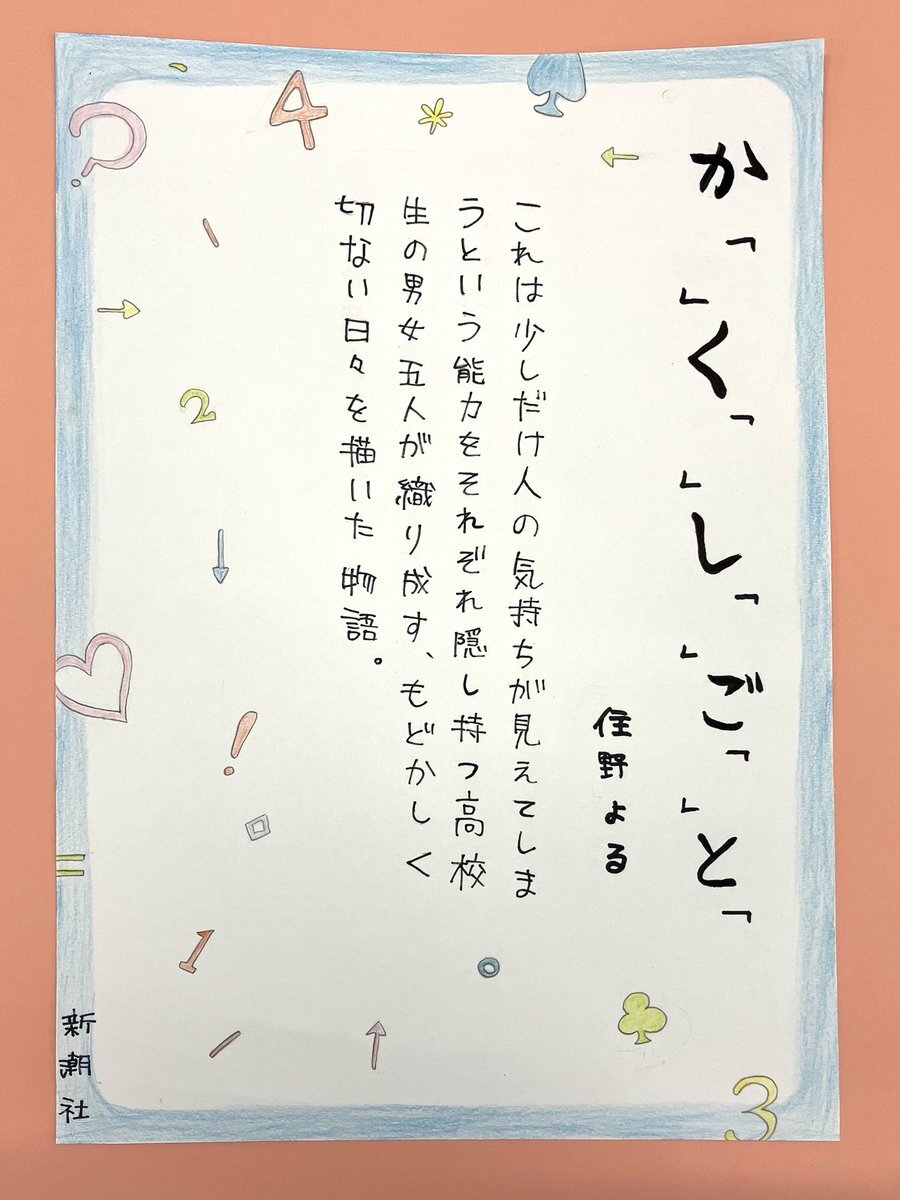 か「」く「」し「」ご「」と「
住野よる
これは少しだけ人の気持ちが見えてしま
うという能力をそれぞれ隠し持つ高校
生の男女五人が織り成す、もどかしく
切ない日々を描いた物語。
新潮社